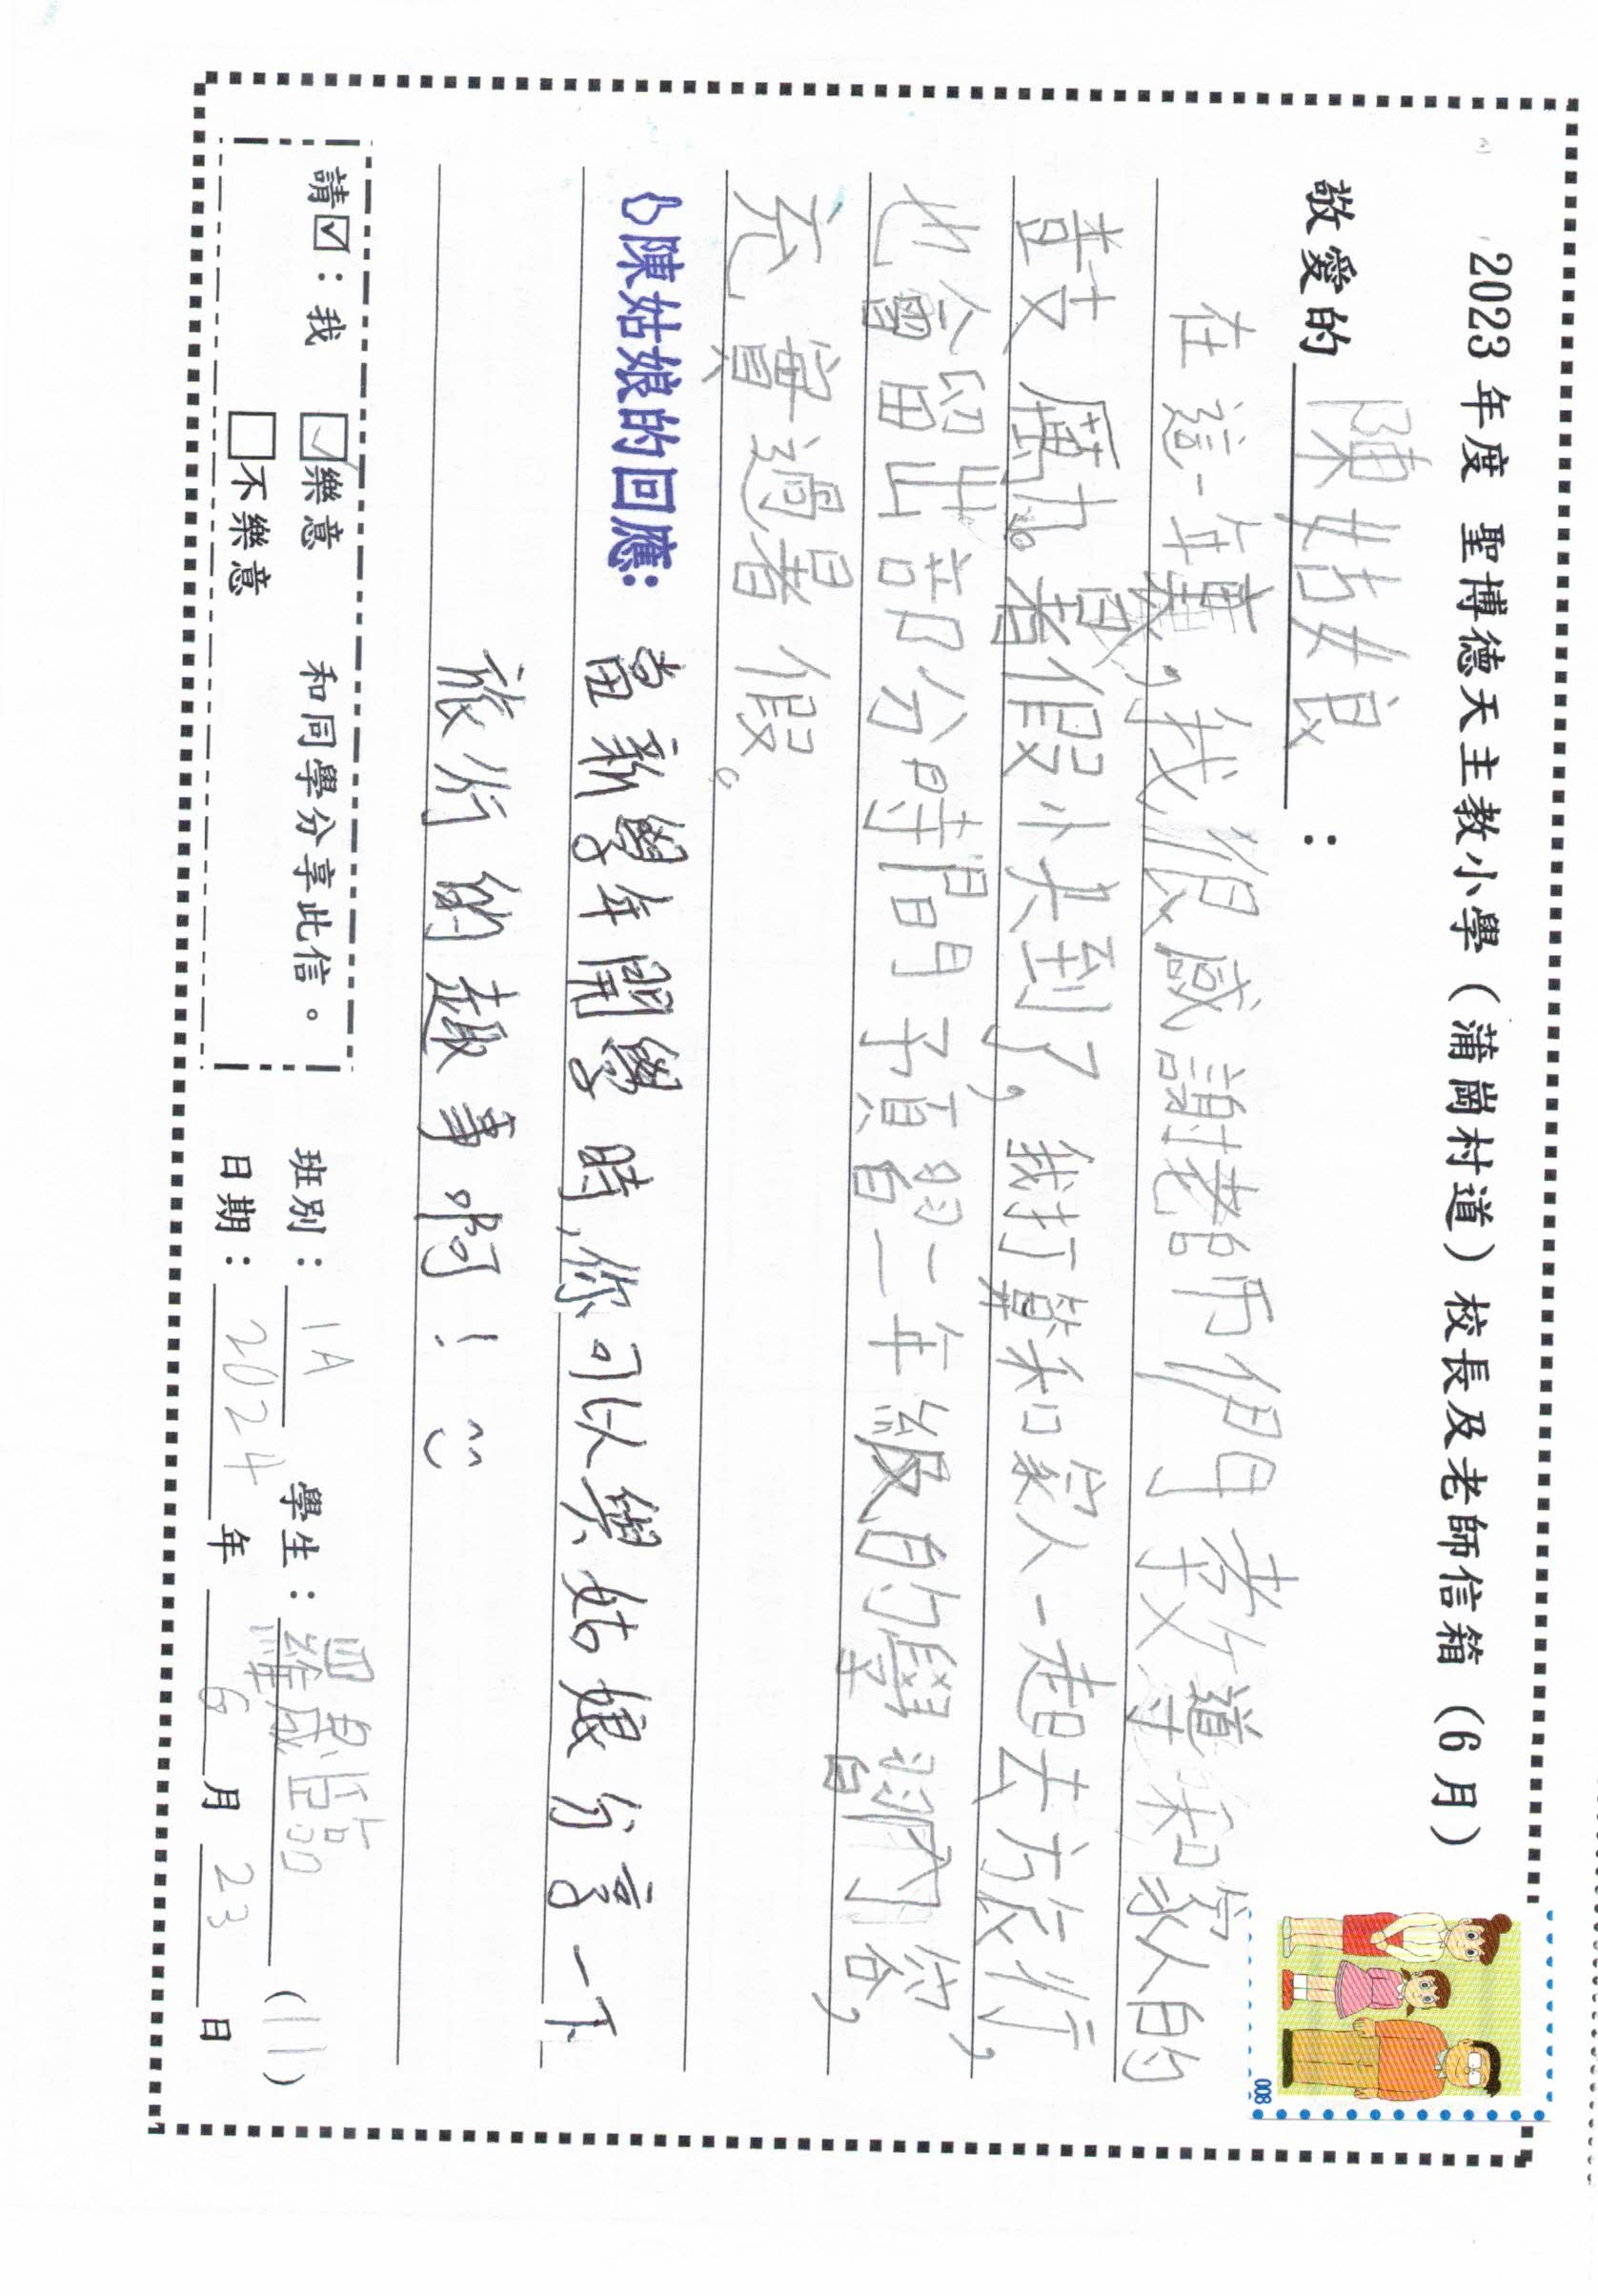 2023 年度 聖博德天主教小學（蒲崗村道）校長及老師信箱（6 月）
敬愛的 陳姑娘：
在這一年裏，我很感謝老師們教導和家人的
鼓勵。暑假小夫到了，我打算和家人一起去旅行，
也會留出部分時間預習二年級的學習內容，
充實過暑假。
陳姑娘的回應：當新學年開學時，你可以與姑娘分享一下
旅行的趣事啊！
請☑：我 ☑樂意 和同學分享此信。
☐不樂意
班別：1A 學生：羅 臨（11）
日期：2024 年 6 月 23 日
008